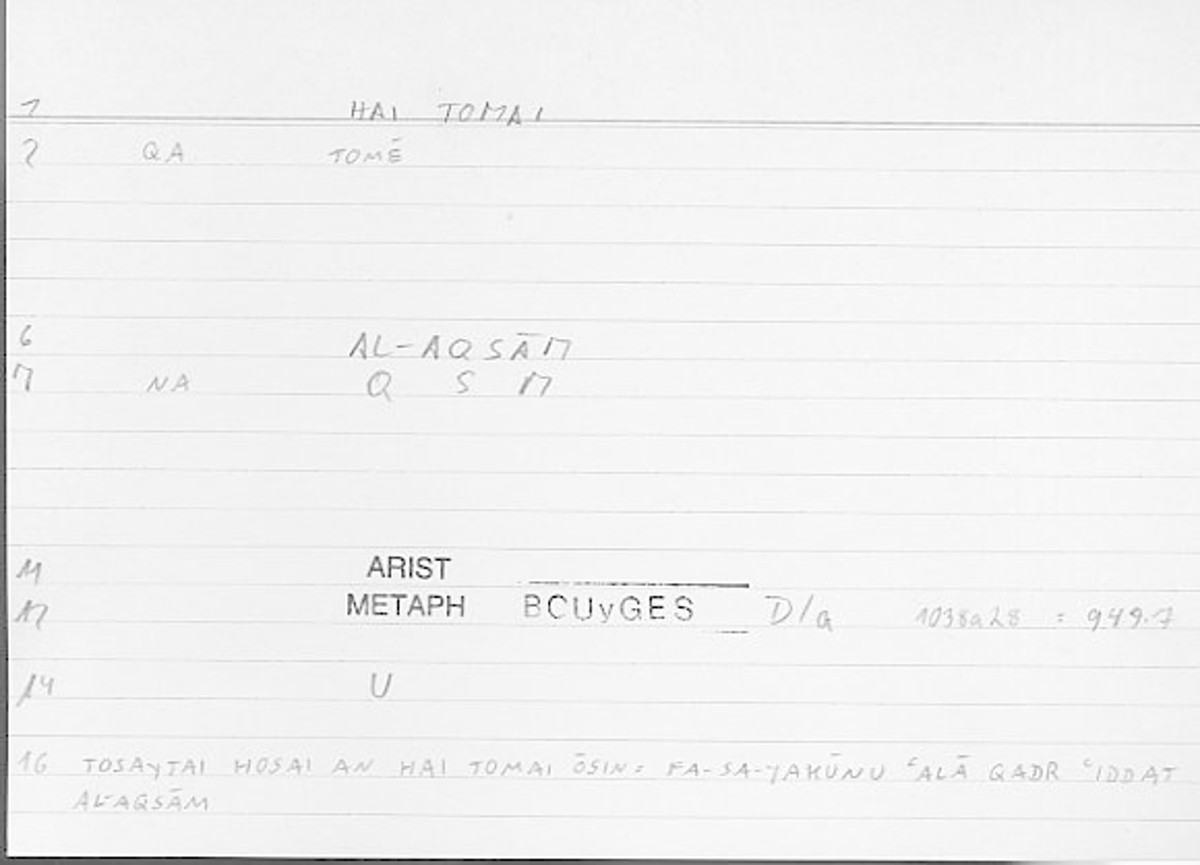 1 HAI TOMAI
2 QA TOMĒ
6 AL-AQSĀM
7 NA Q S M
11 ARIST
12 METAPH BCUyGES D/a 1038a28 = 949.7
14 U
16 TOSAyTAI HOSAI AN HAI TOMAI ŌSIN: FA-SA-YAKŪNU ʿALĀ QADR ʿIDDAT
AL-AQSĀM